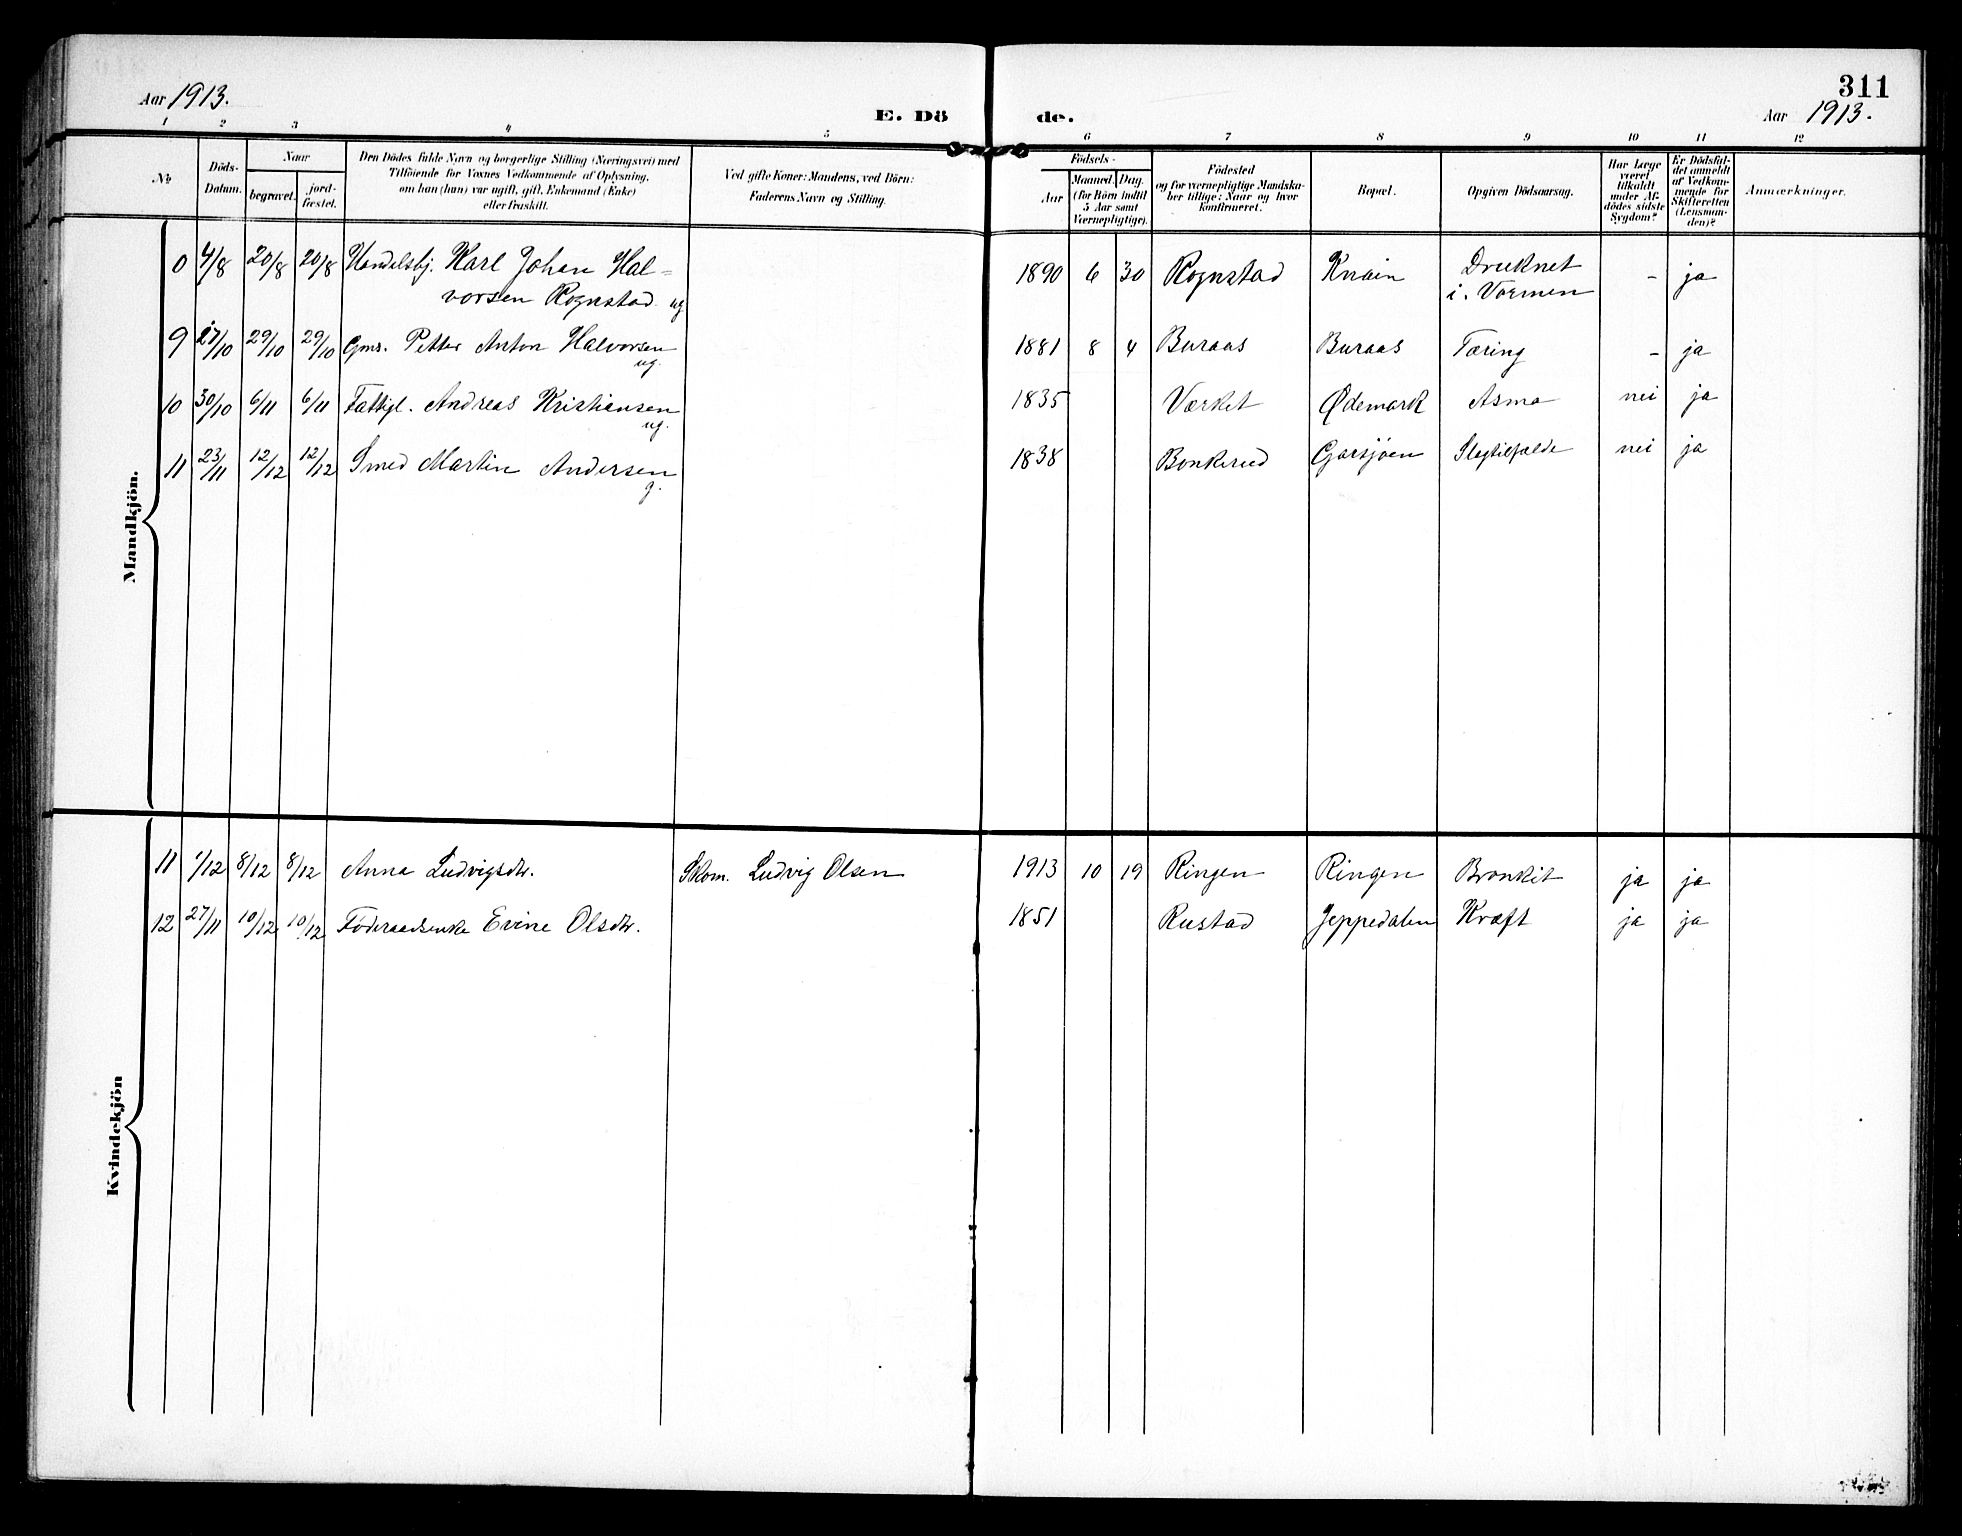 311
Aar 1913.
E. Dö de.
Aar 1913.
1 2 3 4 5 6 7 8 9 10 11 12
No.
Döds-
Datum.
Naar
begravet.
jord-
fæstet.
Den Dödes fulde Navn og borgerlige Stilling (Næringsvei) med
Tilföiende for Voxnes Vedkommende af Oplysning,
om han (hun) var ugift, gift, Enkemand (Enke)
eller fraskilt.
Ved gifte Koner: Mandens, ved Börn:
Faderens Navn og Stilling.
Födsels-
Aar
Maaned. Dag.
(for Börn indtil
5 Aar samt
Værnepligtige).
Födested
og for værnepligtige Mandska-
ber tillige: Naar og hvor
konfirmeret.
Bopæl.
Opgiven Dödsaarsag.
Har Læge
været
tilkaldt
under Af-
dödes sidste
Sygdom?
Er Dödsfal-
det anmeldt
af Vedkom-
mende for
Skifteretten
(Lensman-
den)?
Anmærkninger.
Mandkjön.
0 4/8 20/8 20/8 Handelsbj. Karl Johan Hal- 1890 6 30 Rognstad Knain Druknet - ja
vorsen Rognstad ug i. Vormen
9 27/10 29/10 29/10 Gms. Petter Anton Halvorsen 1881 8 4 Buraas Buraas Tæring - ja
ug.
10 30/10 6/11 6/11 Fattigl. Andreas Kristiansen 1835 Værket Ødemark Asma nei ja
ug.
11 23/11 12/12 12/12 Smed Martin Andersen 1838 Bonkerud Garsjøen Slagtilfælde nei ja
g.
Kvindekjön
11 1/12 8/12 8/12 Anna Ludvigsdtr. Skom. Ludvig Olsen 1913 10 19 Ringen Ringen Bronkit ja ja
12 27/11 10/12 10/12 Føderaadsenke Evine Olsdtr. 1851 Rustad Jeppedalen Kræft ja ja